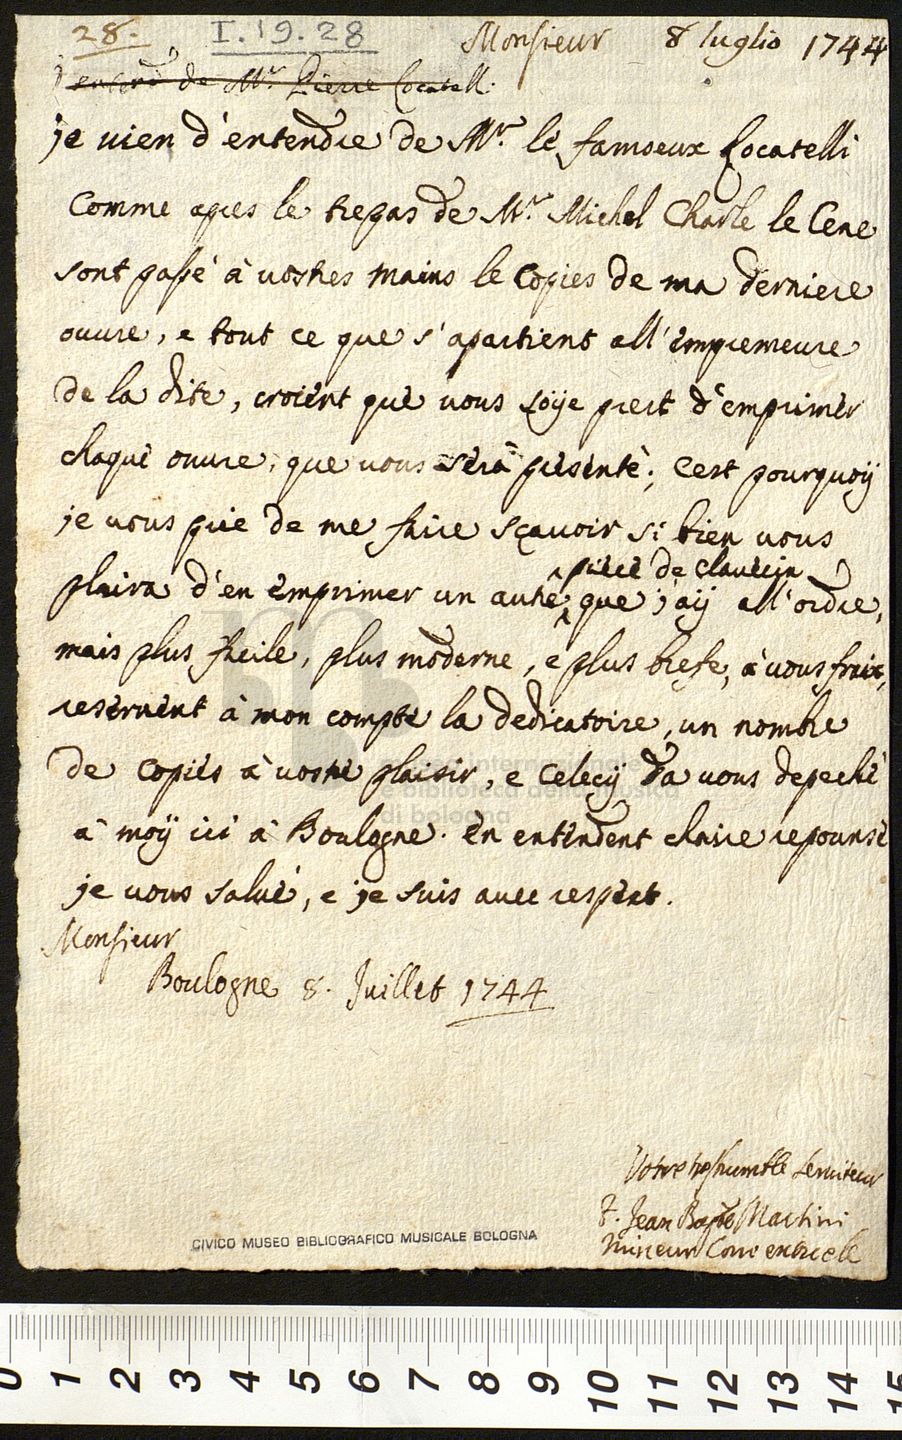 28. I.19.28 Monsieur 8 luglio 1744
de Mr. Pierre Locatell.
je vien d'entendre de Mr. le famoeux Locatelli
Comme apres le trepas de Mr. Michel Charle le Cene
sont passè à vostres mains le Copies de ma derniere
ouvre, e tout ce que s'apartient all'empremeure
de la dite, croient que vous soÿe prest d'emprimer
chaque ouvre, que vous serà presentè; Cest pourquoÿ
je vous prie de me faire sçavoir si bien vous
plaira d'en emprimer un autre que j'aÿ all'ordre,
piece de clavecin
mais plus facile, plus moderne, e plus brefe, à vous fraix,
reservent à mon compte la dedicatoire, un nombre
de copies à vostre plaisir, e celecÿ da vous depechè
à moÿ ici à Boulogne. en entendent claire repounse
je vous saluè, e je suis avec respect.
Monsieur
Boulogne 8. Juillet 1744
Votre treshumble Serviteur
F. Jean Bapte Martini
Mineur Conventuele
CIVICO MUSEO BIBLIOGRAFICO MUSICALE BOLOGNA
museo internazionale
e biblioteca della musica
di bologna
0 1 2 3 4 5 6 7 8 9 10 11 12 13 14 15